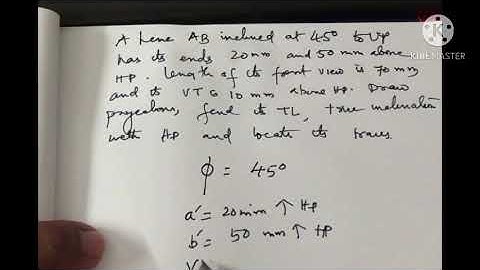 A Line AB inclined at 45° to Vp
has its ends 20mm and 50 mm above
HP. Length of its front view is 70 mm
and its VT is 10 mm above HP. Draw
projections, find its TL, true inclination
with HP and locate its traces.
ϕ = 45°
a' = 20mm ↑ HP
b' = 50 mm ↑ HP
V
KINEMASTER